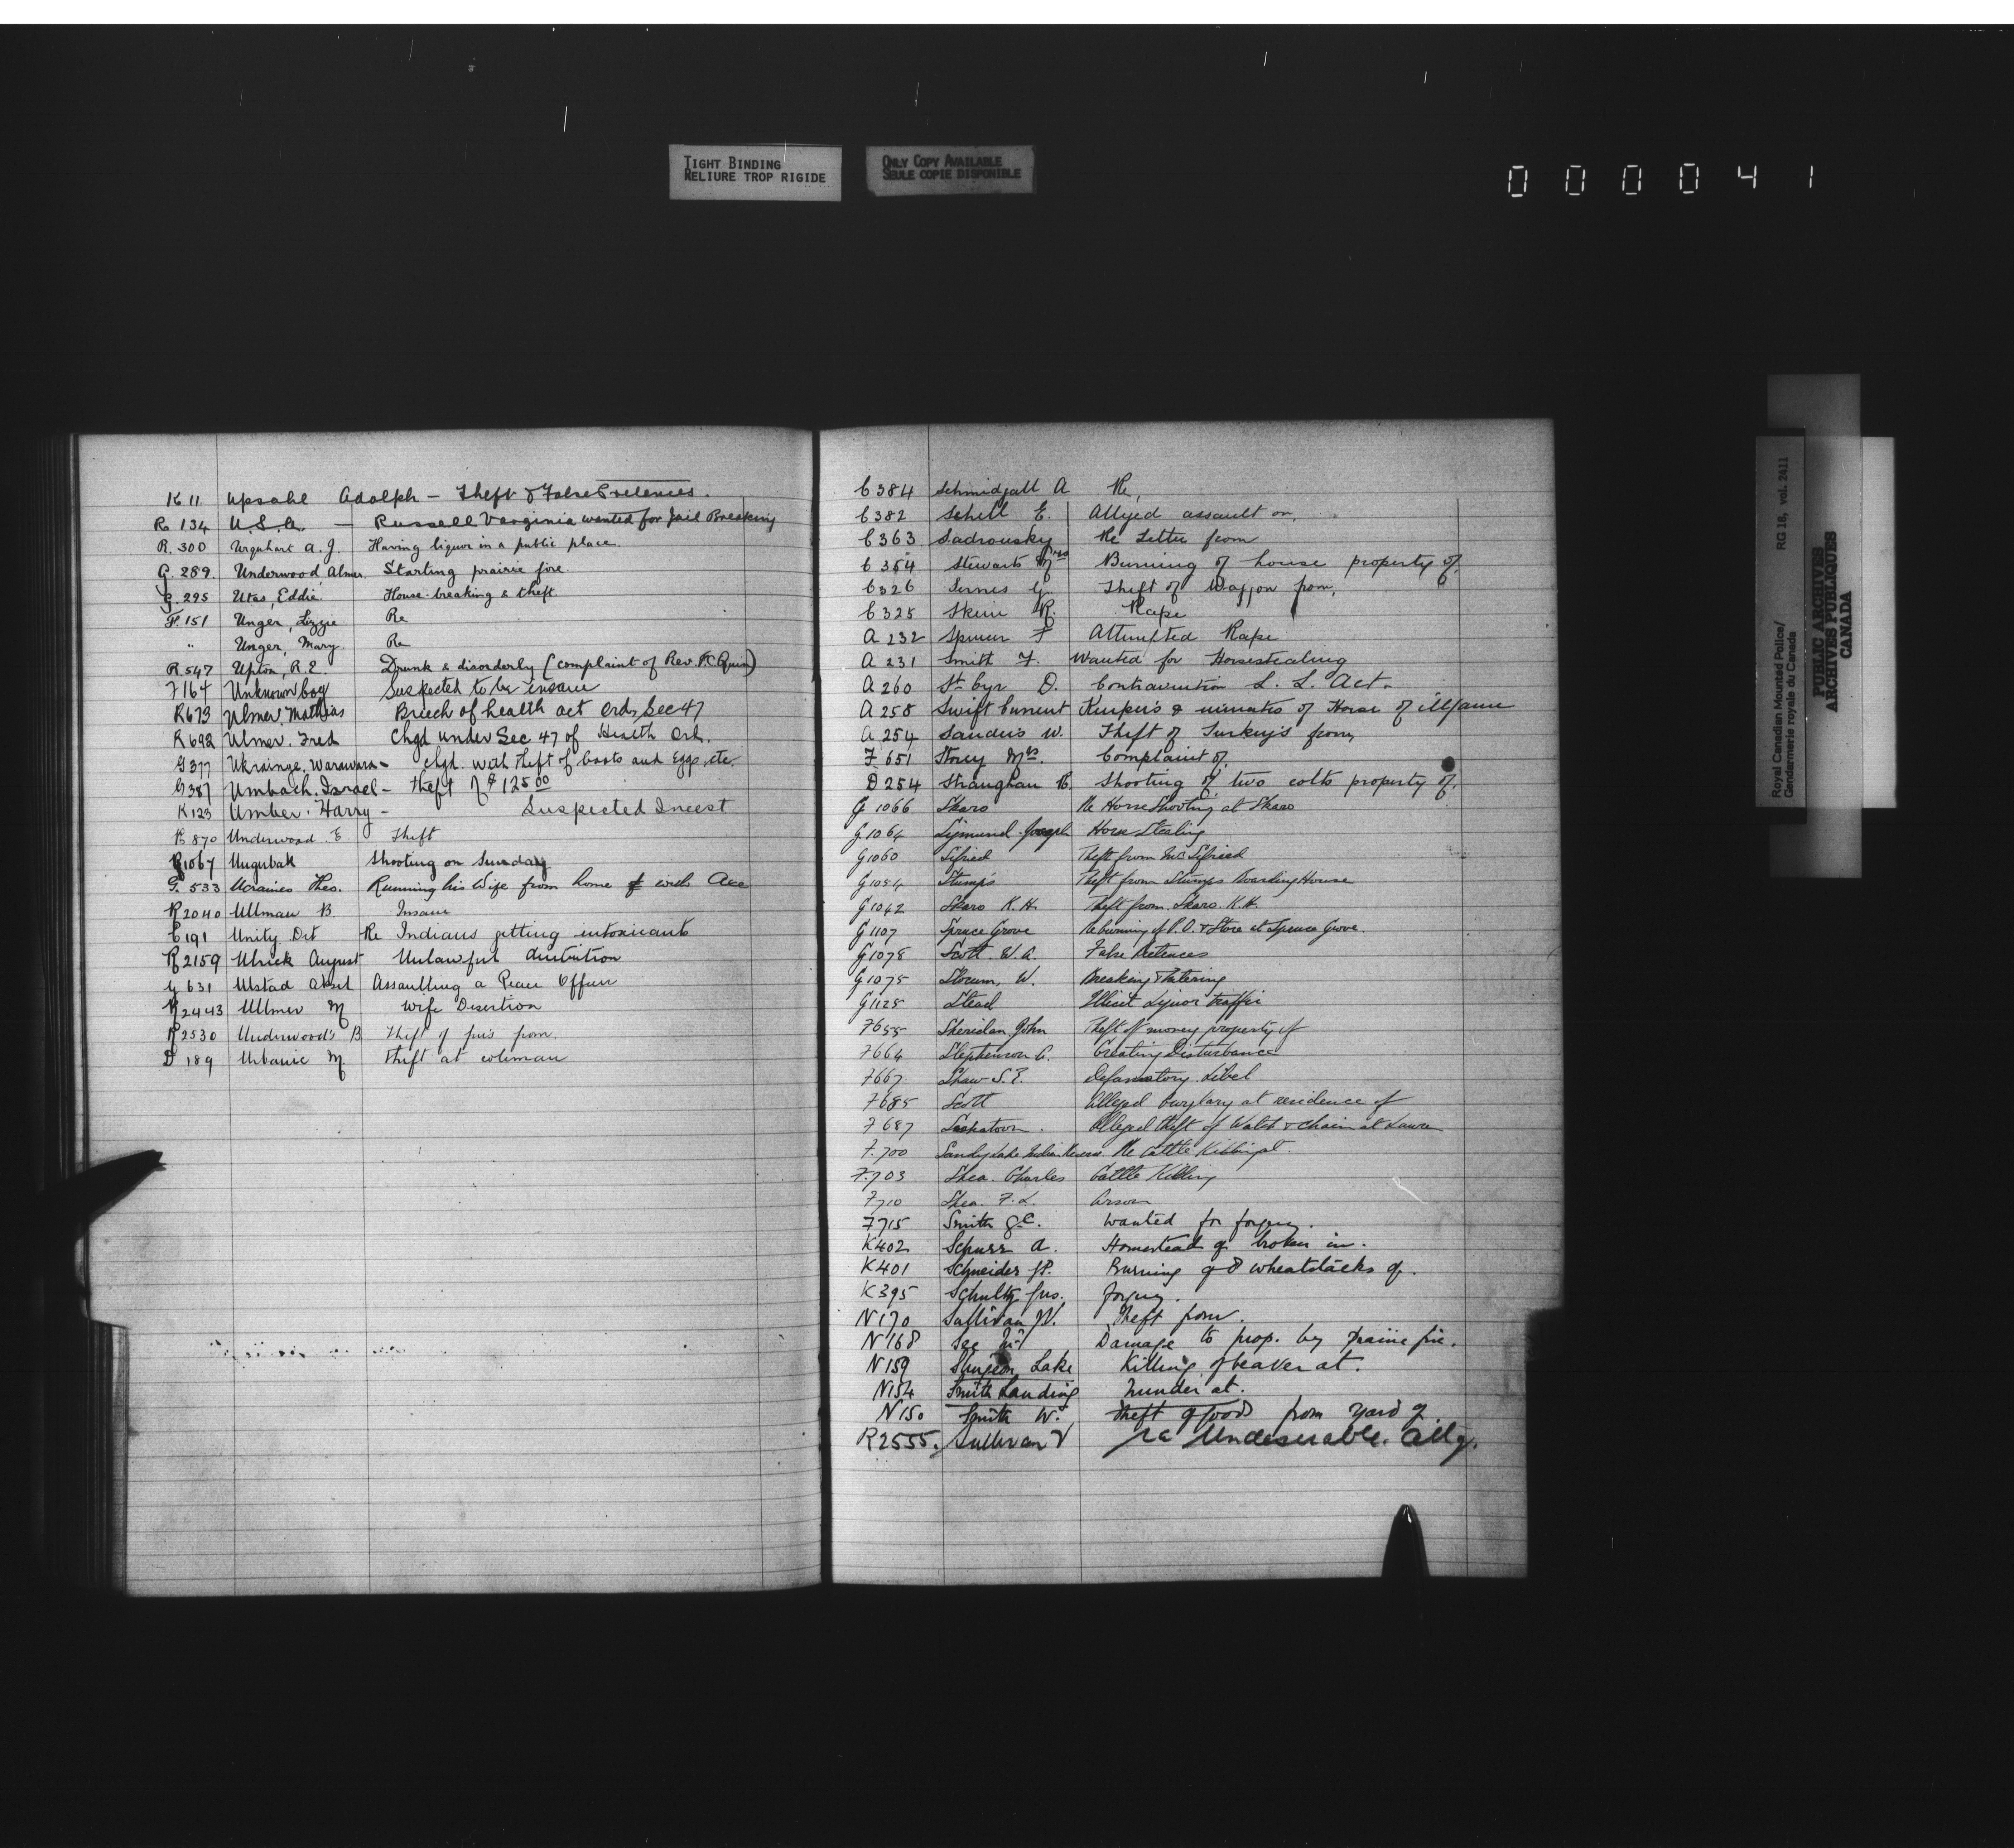 TIGHT BINDING
RELIURE TROP RIGIDE
ONLY COPY AVAILABLE
SEULE COPIE DISPONIBLE
0 0 0 0 4 1
K 11 Upsahl Adolph - Theft & False Pretences.
R 134 U.S.A. - Russell Varginia wanted for Jail Breaking
R. 300 Urquhart A. J. Having liquor in a public place.
G. 289. Underwood, Almer Starting prairie fire.
G. 295 Utas, Eddie. House-breaking & theft
F. 151 Unger, Lizzie Re
" Unger, Mary. Re
R. 547 Upton, R. E. Drunk & disorderly (complaint of Rev. Quin)
F 164 Unknown boy Suspected to be insane
R 673 Ulmer, Mathias Breech of health act Ord, Sec 47
R 692 Ulmer. Fred Chgd under Sec 47 of Health Ord.
G 377 Ukrainge, Warawara - Chgd. with theft of boots and Eggs, etc.
G 387 Umbach. Israel - Theft of $125 00
K 123 Umber. Harry - Suspected Incest
R 870 Underwood. E. Theft
1067 Ungubak Shooting on Sunday
G. 533 Ucranies Theo. Running his Wife from home with Axe
R 2040 Ullman B. Insane
C 191 Unity Det Re Indians getting intoxicants
R 2159 Ulrick August Unlawful
G 631 Ustad Assaulting a Peace Officer
R 2443 Ullmer M Wife Desertion
R 2530 Underwood's B. Theft of furs from.
D 189 Urbanic M Theft at Coleman
C 384 Schmidgall A Re,
C 382 Schell E. Alleged assault on,
C 363 Sadrousky Re Letter from
C 354 Stewarts Burning of house property of,
C 326 Sernes G. Theft of Waggon from,
C 325 Skein R. Rape
A 232 Spencer F Attempted Rape
A 231 Smith F. Wanted for Horsestealing
A 260 St. Cyr D. Contravention L. L. Act.
A 258 Swift Current Keepers & inmates of House of illfame
A 254 Sanders W. Theft of Turkeys from,
F 651 Storey Mrs. Complaint of,
D 254 Straughan Shooting of two colts property of.
G 1066 Skaro Re Horse Shooting at Skaro
G 1064 Sigmund Joseph Horse Stealing
G 1060 Sifried Theft from Mr Sifried
G 1054 Stumps Theft from Stumps Boarding House
G 1042 Skaro K. H. Theft from Skaro. K. H.
G 1107 Spruce Grove Re burning of P. O. & Store at Spruce Grove.
G 1078 Scott W. A. False Pretences
G 1075 Slocum, W. Breaking & Entering
G 1125 Stead Illicit Liquor traffic
F 655 Sheridan John Theft of money property of
F 664 Stephenson C. Creating Disturbance
F 667 Shaw S. E. Defamatory Libel
F 685 Scott Alleged burglary at residence of
F 687 Saskatoon. Alleged theft of Watch & chain at
F. 700 Sandy Lake Indian Reserve Re Cattle Killing at.
F. 703 Shea. Charles Cattle Killing
F 710 Shea. F. L. Arson
F 715 Smith wanted for forgery.
K 402 Schurr A. Homestead of broken in.
K 401 Schneider Burning of 8 wheatstacks of.
K 395 Schultz Gus. forgery.
N 170 Sullivan W. Theft from.
N 168 See Damage to prop. by prairie fire.
N 159 Sturgeon Lake Killing of beaver at.
N 154 Smith Landing Murder at.
N 150 Smith W. Theft of goods from yard of
R 2555. Sullivan V re Undeserable. Allg.
Royal Canadian Mounted Police/ RG 18, vol. 2411
Gendarmerie royale du Canada
PUBLIC ARCHIVES
ARCHIVES PUBLIQUES
CANADA